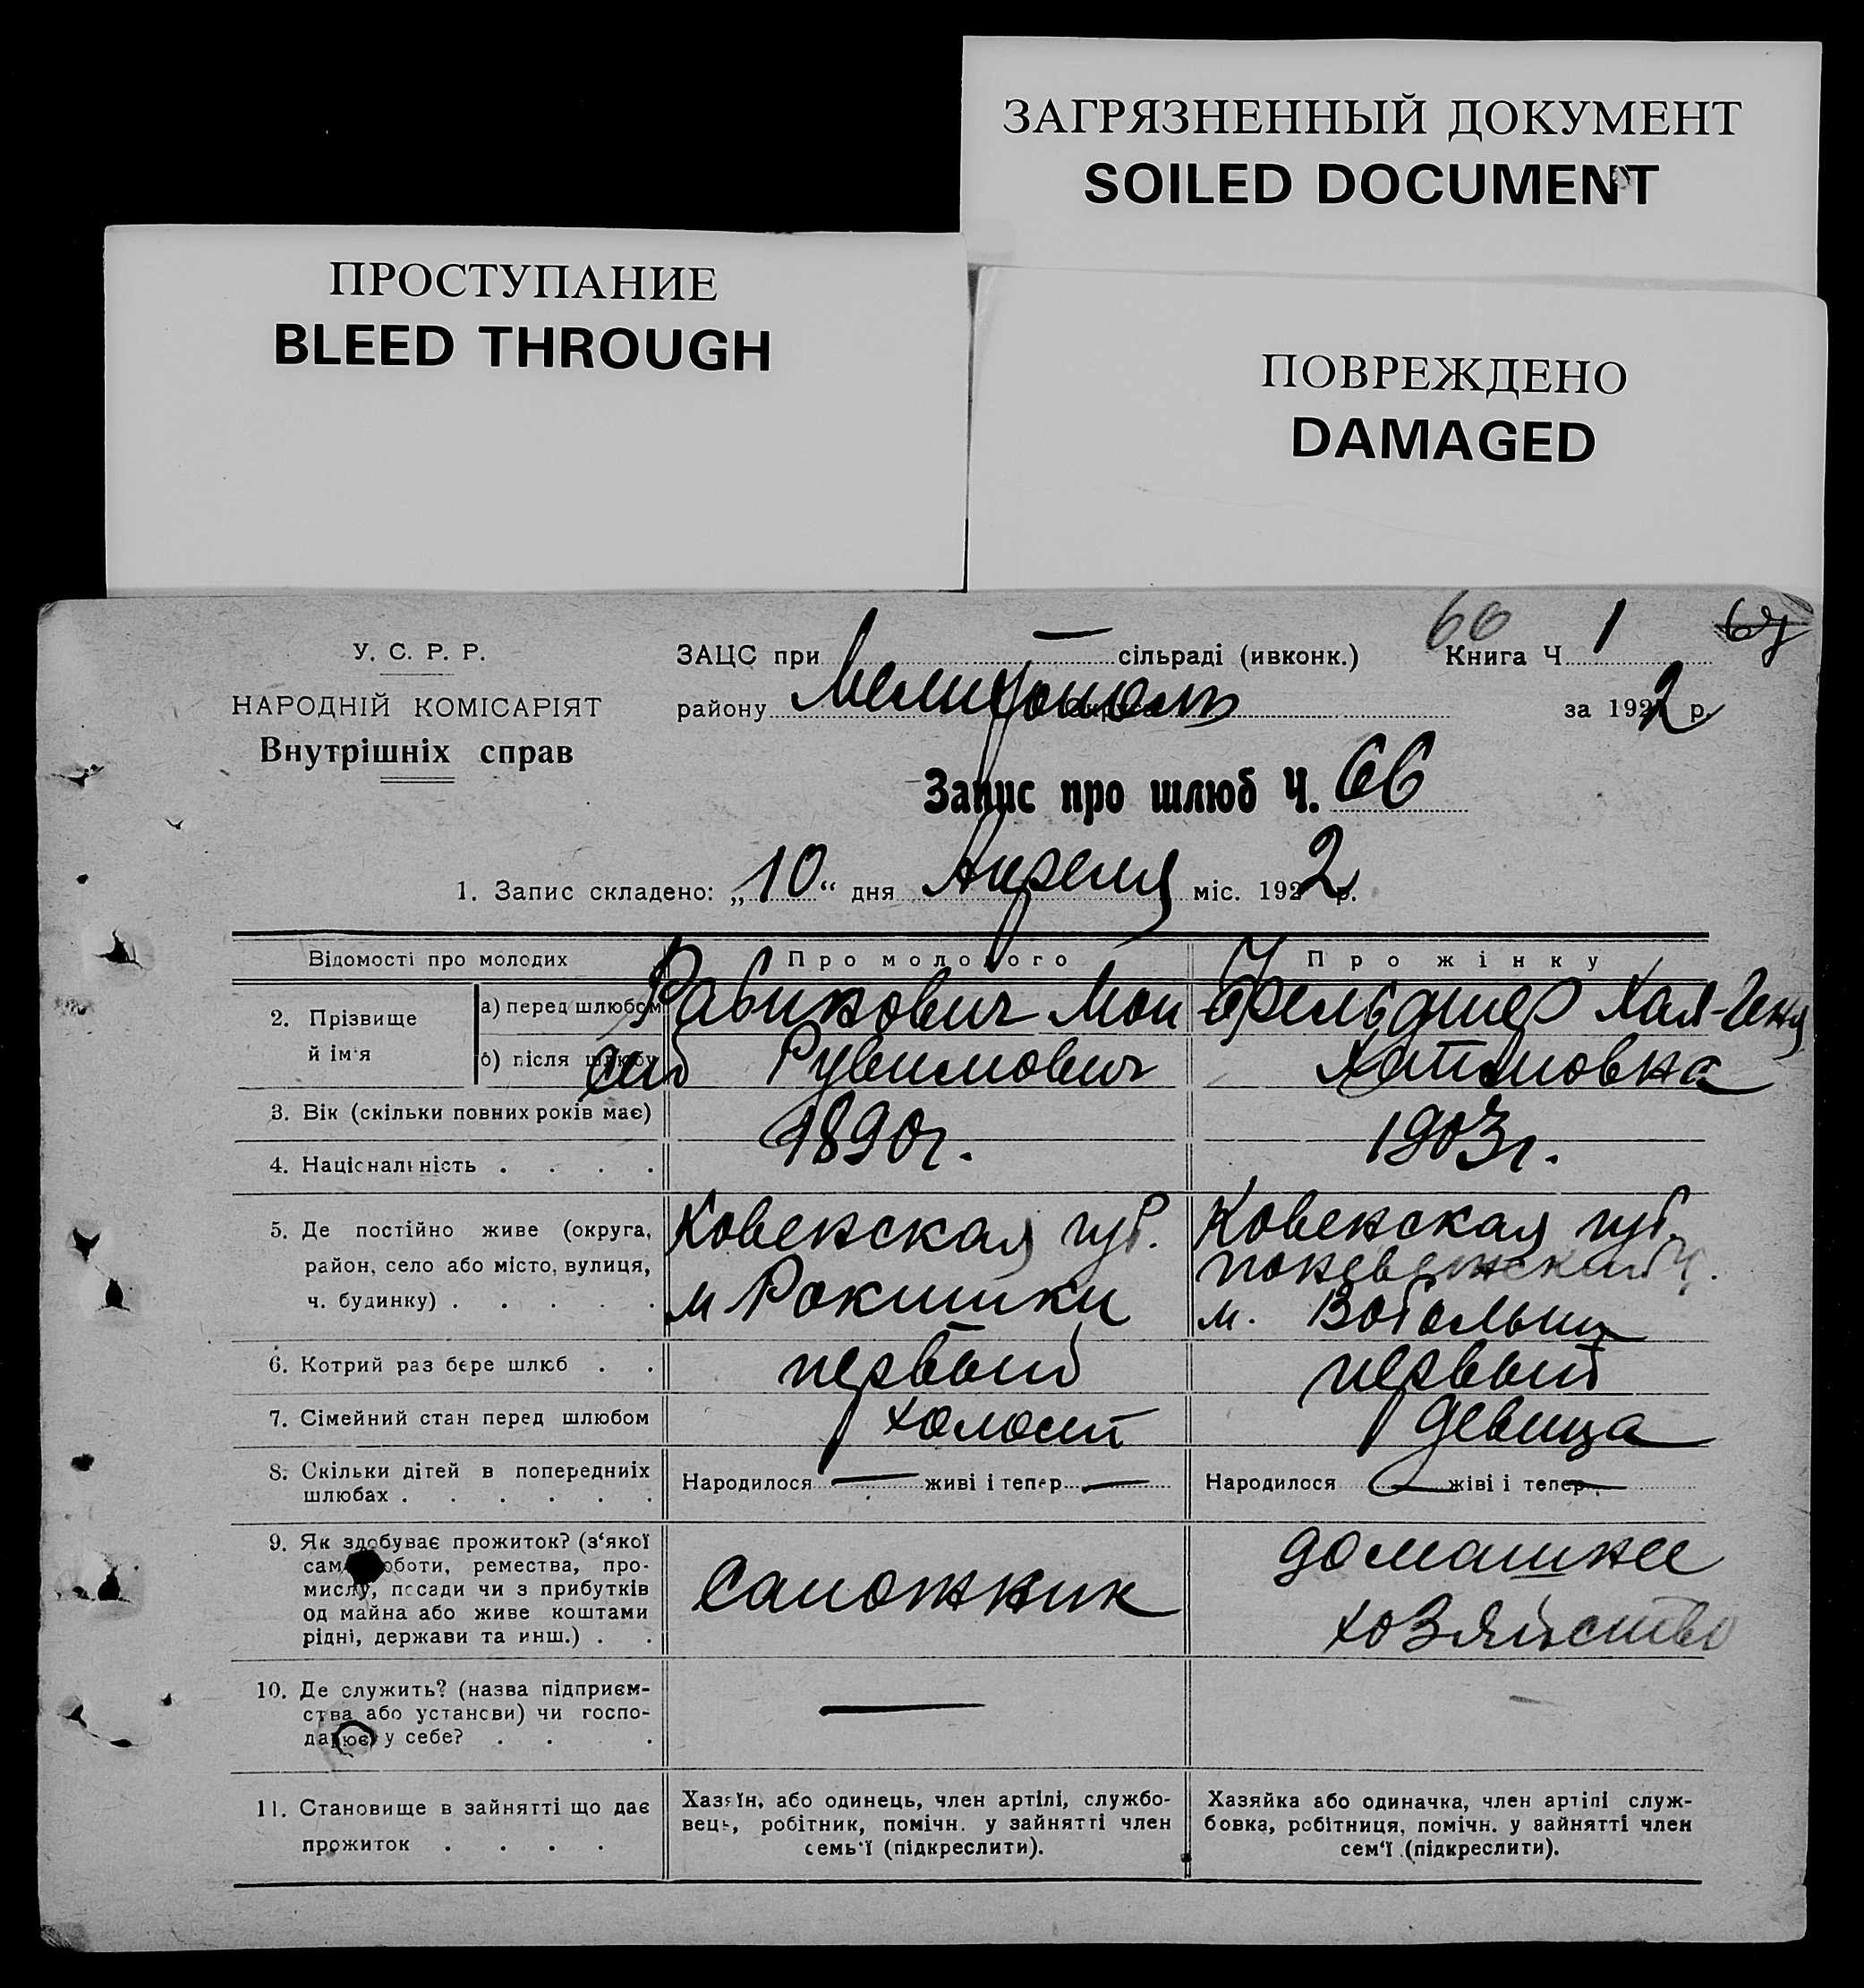 ЗАГРЯЗНЕННЫЙ ДОКУМЕНТ
SOILED DOCUMENT
ПРОСТУПАНИЕ
BLEED THROUGH
ПОВРЕЖДЕНО
DAMAGED
У. С. Р. Р.
НАРОДНІЙ КОМІСАРІЯТ
Внутрішніх справ
60
ЗАЦС при сільраді (ивконк.) Книга Ч. 1
району Мелитополь за 1922 р.
Запис про шлюб Ч. 66
1. Запис складено: „10“ дня Апреля міс. 1922 р.
Відомості про молодих
Про молодого
Про жінку
2. Прізвище й ім'я
а) перед шлюбом
б) після шлюбу
Рабинович Мои
сей Рувимович
Фельдшер Хая-Геня
3. Вік (скільки повних років має)
1890г.
1903г.
4. Національність . . . .
5. Де постійно живе (округа,
район, село або місто, вулиця,
ч. будинку) . . . . .
Ковенская губ.
м Рокишки
Ковенская губ.
м. Вобольники
6. Котрий раз бере шлюб . .
первый
первый
7. Сімейний стан перед шлюбом
холост
девица
8. Скільки дітей в попередниіх
шлюбах . . . . . .
Народилося — живі і тепер —
Народилося — жіві і тепер —
9. Як здобуває прожиток? (з'якої
роботи, ремества, про-
мислу, посади чи з прибутків
од майна або живе коштами
рідні, держави та инш.) . .
Сапожник
домашнее
хозяйство
10. Де служить? (назва підприєм-
ства або установи) чи госпо-
дарює у себе? . . .
—
11. Становище в зайнятті що дає
прожиток . . . .
Хазяїн, або одинець, член артілі, службо-
вець, робітник, помічн. у зайнятті член
семь'ї (підкреслити).
Хазяйка або одиначка, член артілі служ-
бовка, робітниця, помічн. у зайнятті член
сем'ї (підкреслити).